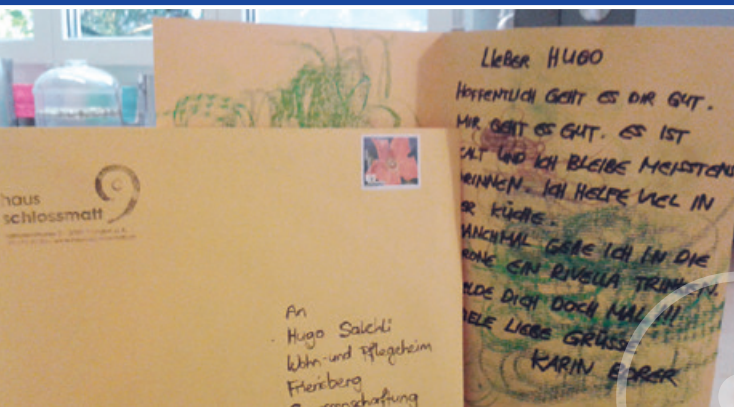 haus
schlossmatt
An
Hugo Salchli
Wohn- und Pflegeheim
Frienisberg
LIEBER HUGO
HOFFENTLICH GEHT ES DIR GUT.
MIR GEHT ES GUT. ES IST
KALT UND ICH BLEIBE MEISSTENS
RINNEN. ICH HELFE VIEL IN
ER KÜCHE.
MANCHMAL GEHE ICH IN DIE
RONE EIN RIVELLA TRINKEN.
ELDE DICH DOCH MAL!!!
IELE LIEBE GRÜSSE
KARIN BORER